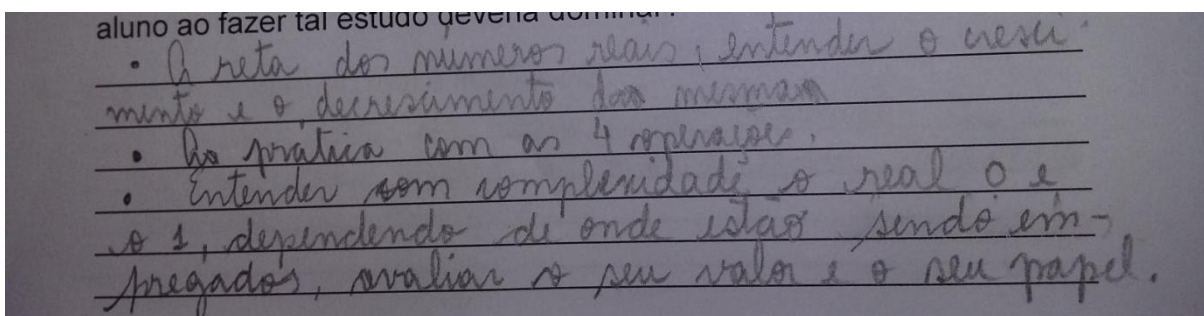 aluno ao fazer tal estudo deveria dominar?
• A reta dos números reais, entender o cresci-
mento e o decrescimento das mesmas
• As prática com as 4 operações.
• Entender com complexidade o real 0 e
o 1, dependendo de onde estão sendo em-
pregados, avaliar o seu valor e o seu papel.